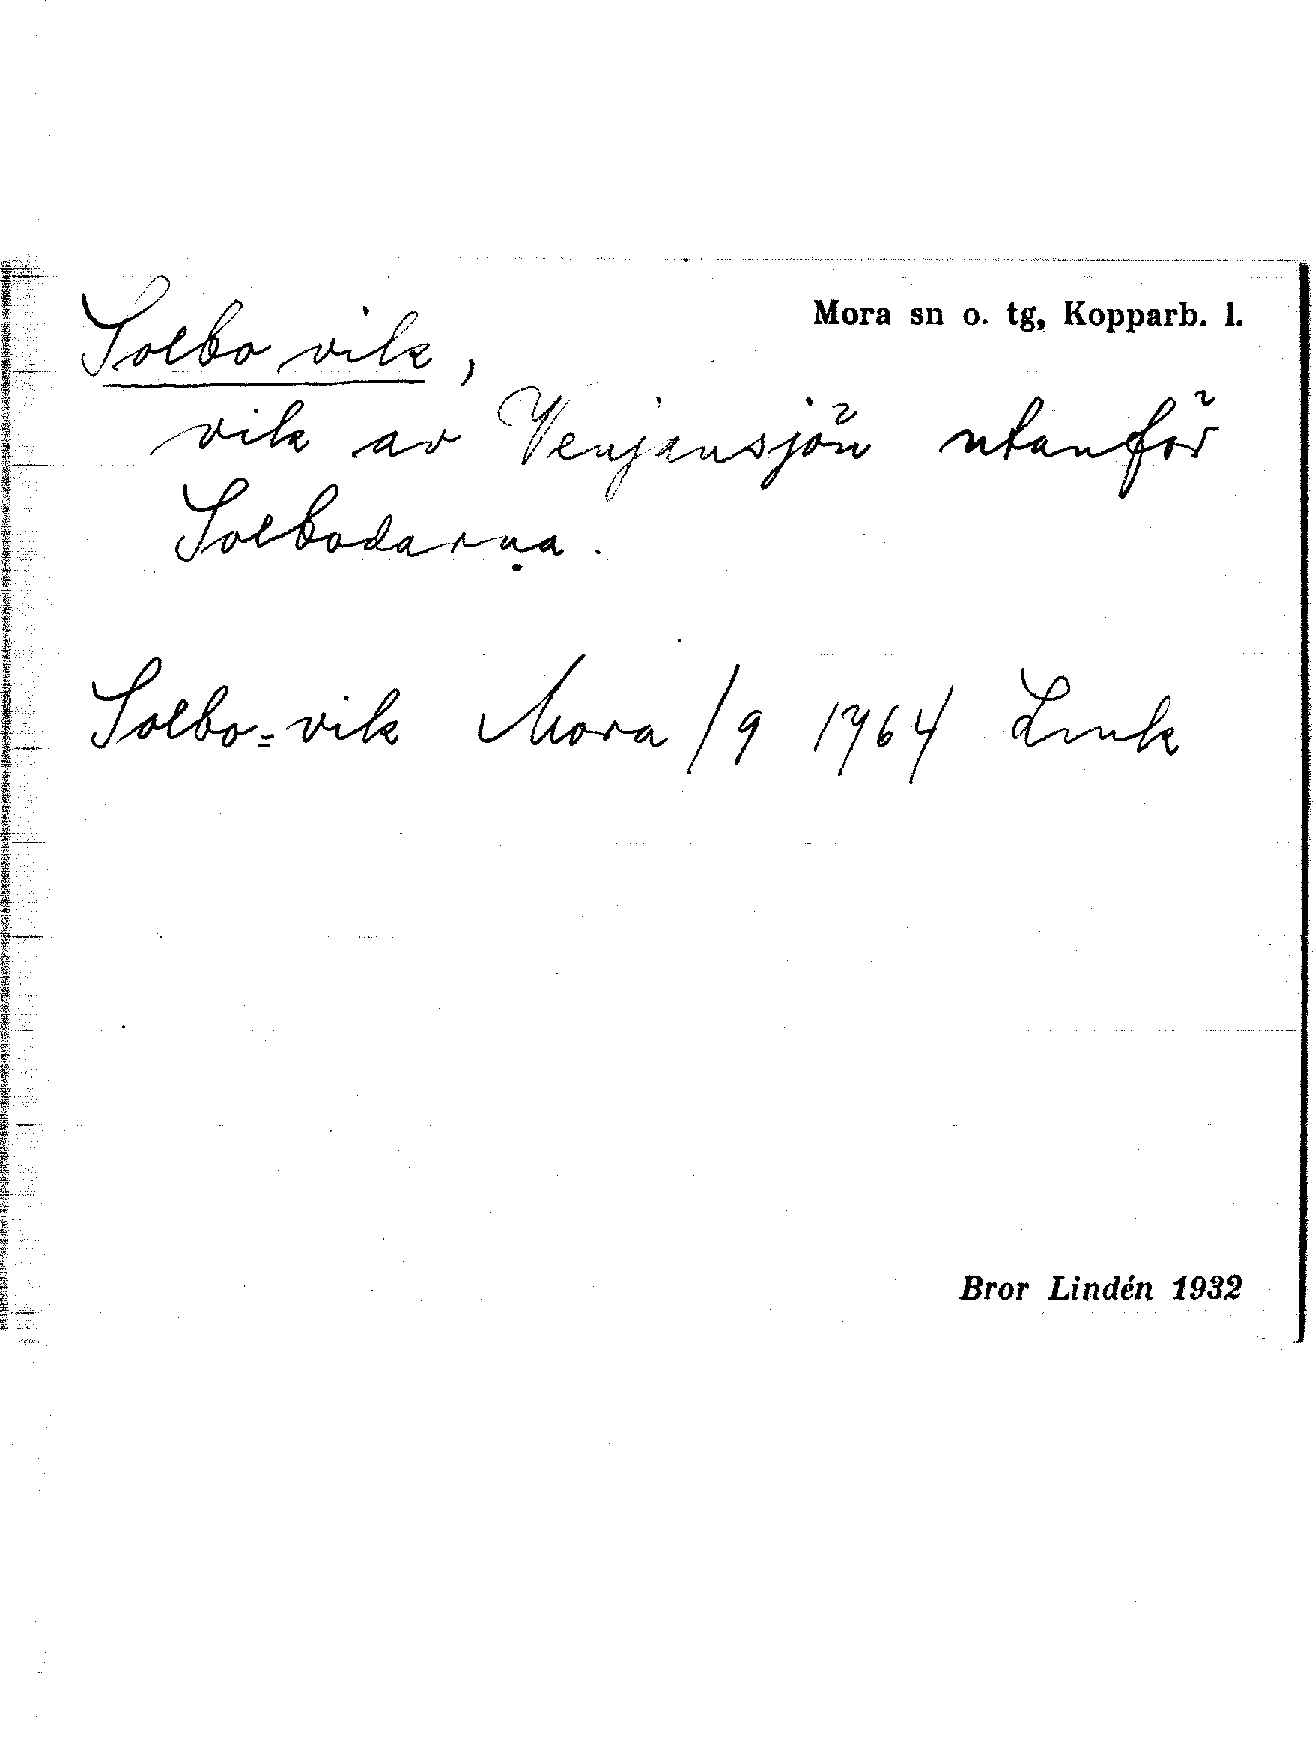 Mora sn o. tg, Kopparb. l.
Solbo vik,
vik av Venjansjön utanför
Solbodarna.
Solbo=vik Mora /9 1764 Lmk
Bror Lindén 1932